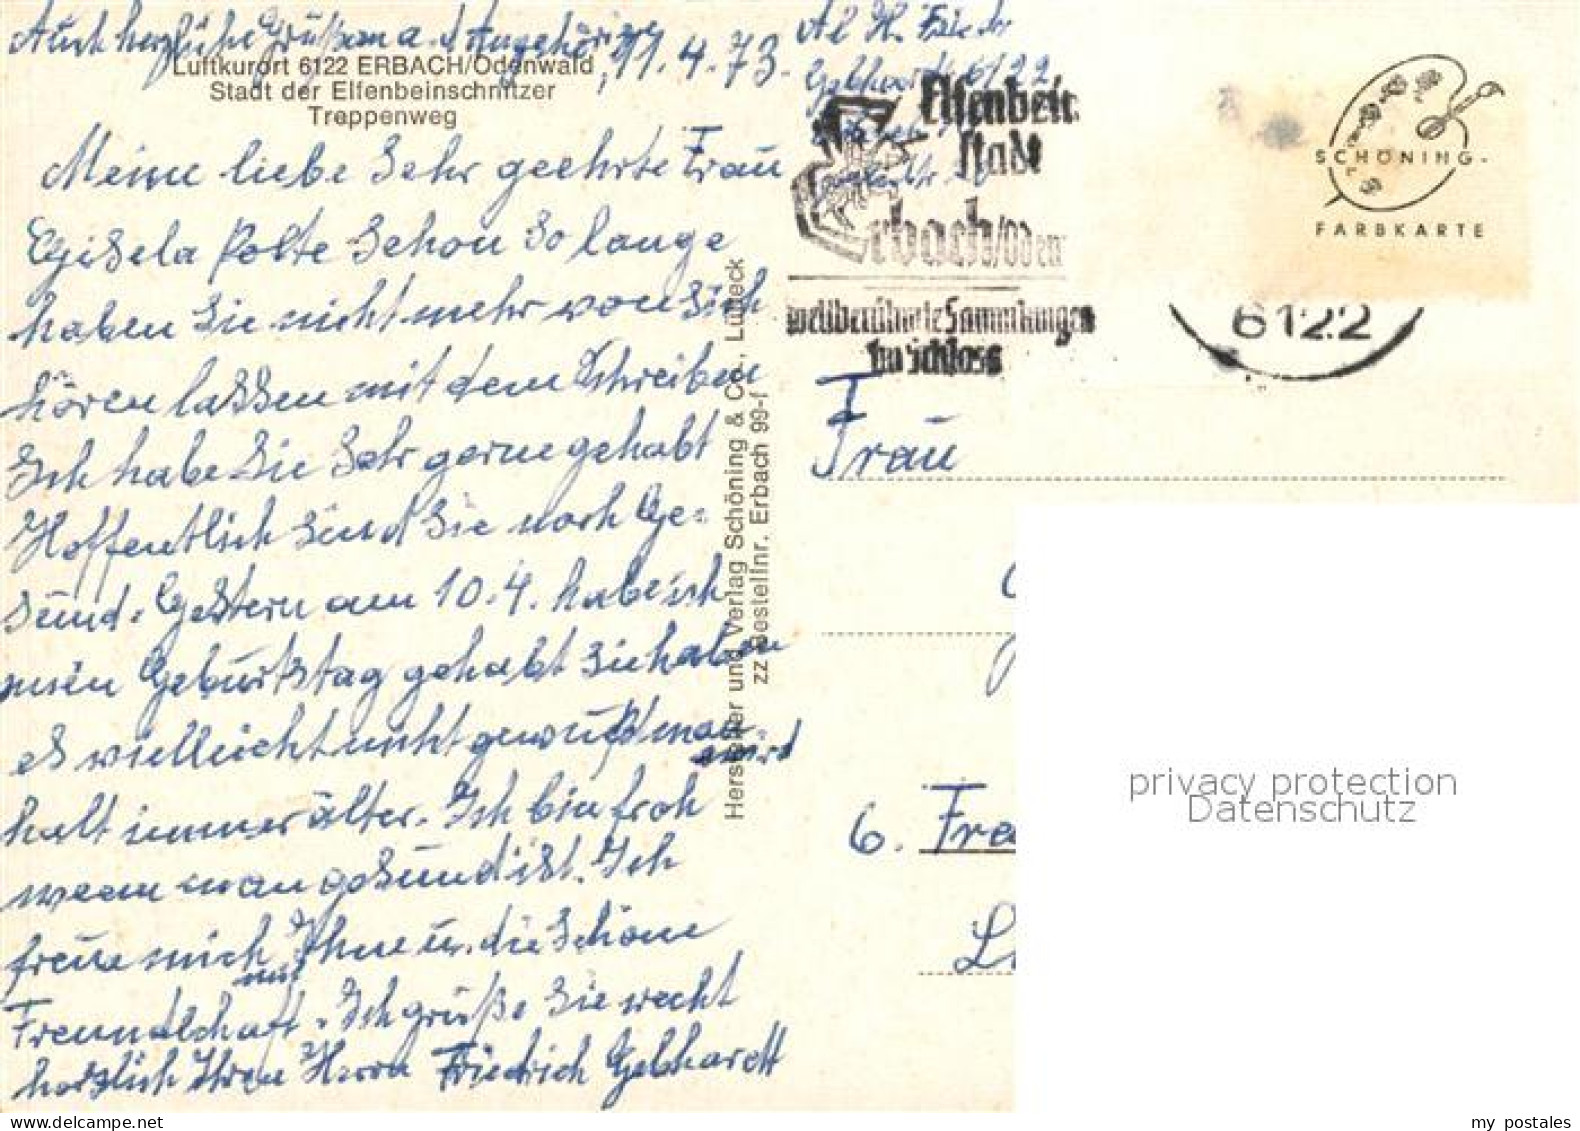 Auch herzliche Grüße an a. d. Angehörige
11.4.73.
Luftkurort 6122 ERBACH/Odenwald
Stadt der Elfenbeinschnitzer
Treppenweg
Meine liebe Sehr geehrte Frau
Gisela Polte Schon so lange
haben Sie nicht mehr von Sich
hören lassen mit dem Schreiben
Ich habe Sie Sehr gerne gehabt
Hoffentlich Sind Sie noch Ge-
sund. Gestern am 10.4. habe ich
mein Geburtstag gehabt Sie haben
es vielleicht nicht gewußt man
wird
halt immer älter. Ich bin froh
wenn man gesund ist. Ich
freue mich Ihne u. die Schöne
mit
Freundschaft. Ich grüße Sie recht
herzlich Ihren Herrn Friedrich Gebhardt
Hersteller und Verlag Schöning & Co., Lübeck
zz Bestellnr. Erbach 99-f
6122
Elfenbein
stadt
Erbach/Oden
weltberühmte Sammlungen
im Schloss
SCHÖNING-
FARBKARTE
6122
Frau
6. Fra
privacy protection
Datenschutz
my postales
www.delcampe.net